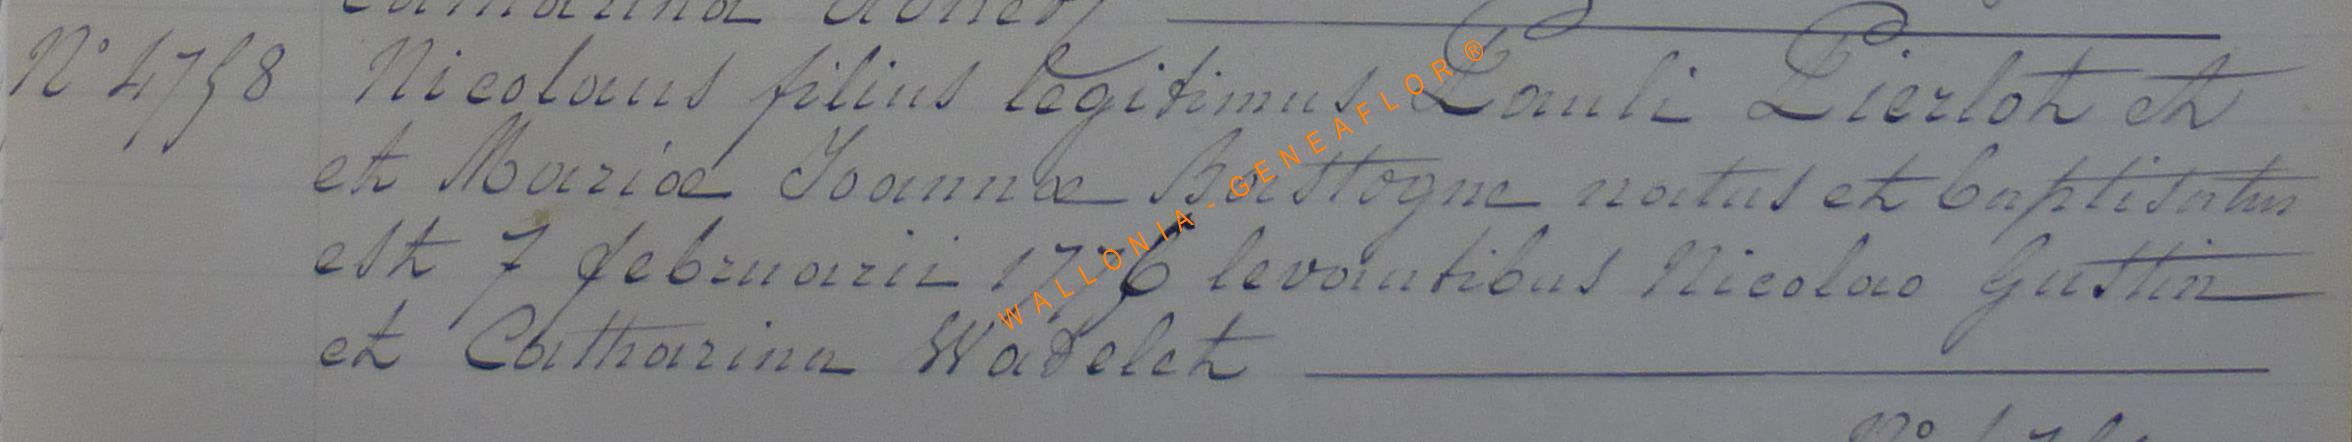 Catharina
N° 4758 Nicolaus filius legitimus Pauli Pierlot et
et Mariæ Joannæ Bastogne natus et baptisatus
est 7 februarii 1776 levantibus Nicolao Gustin
et Catharina Wadelet
WALLONIA - GENEAFLOR ®